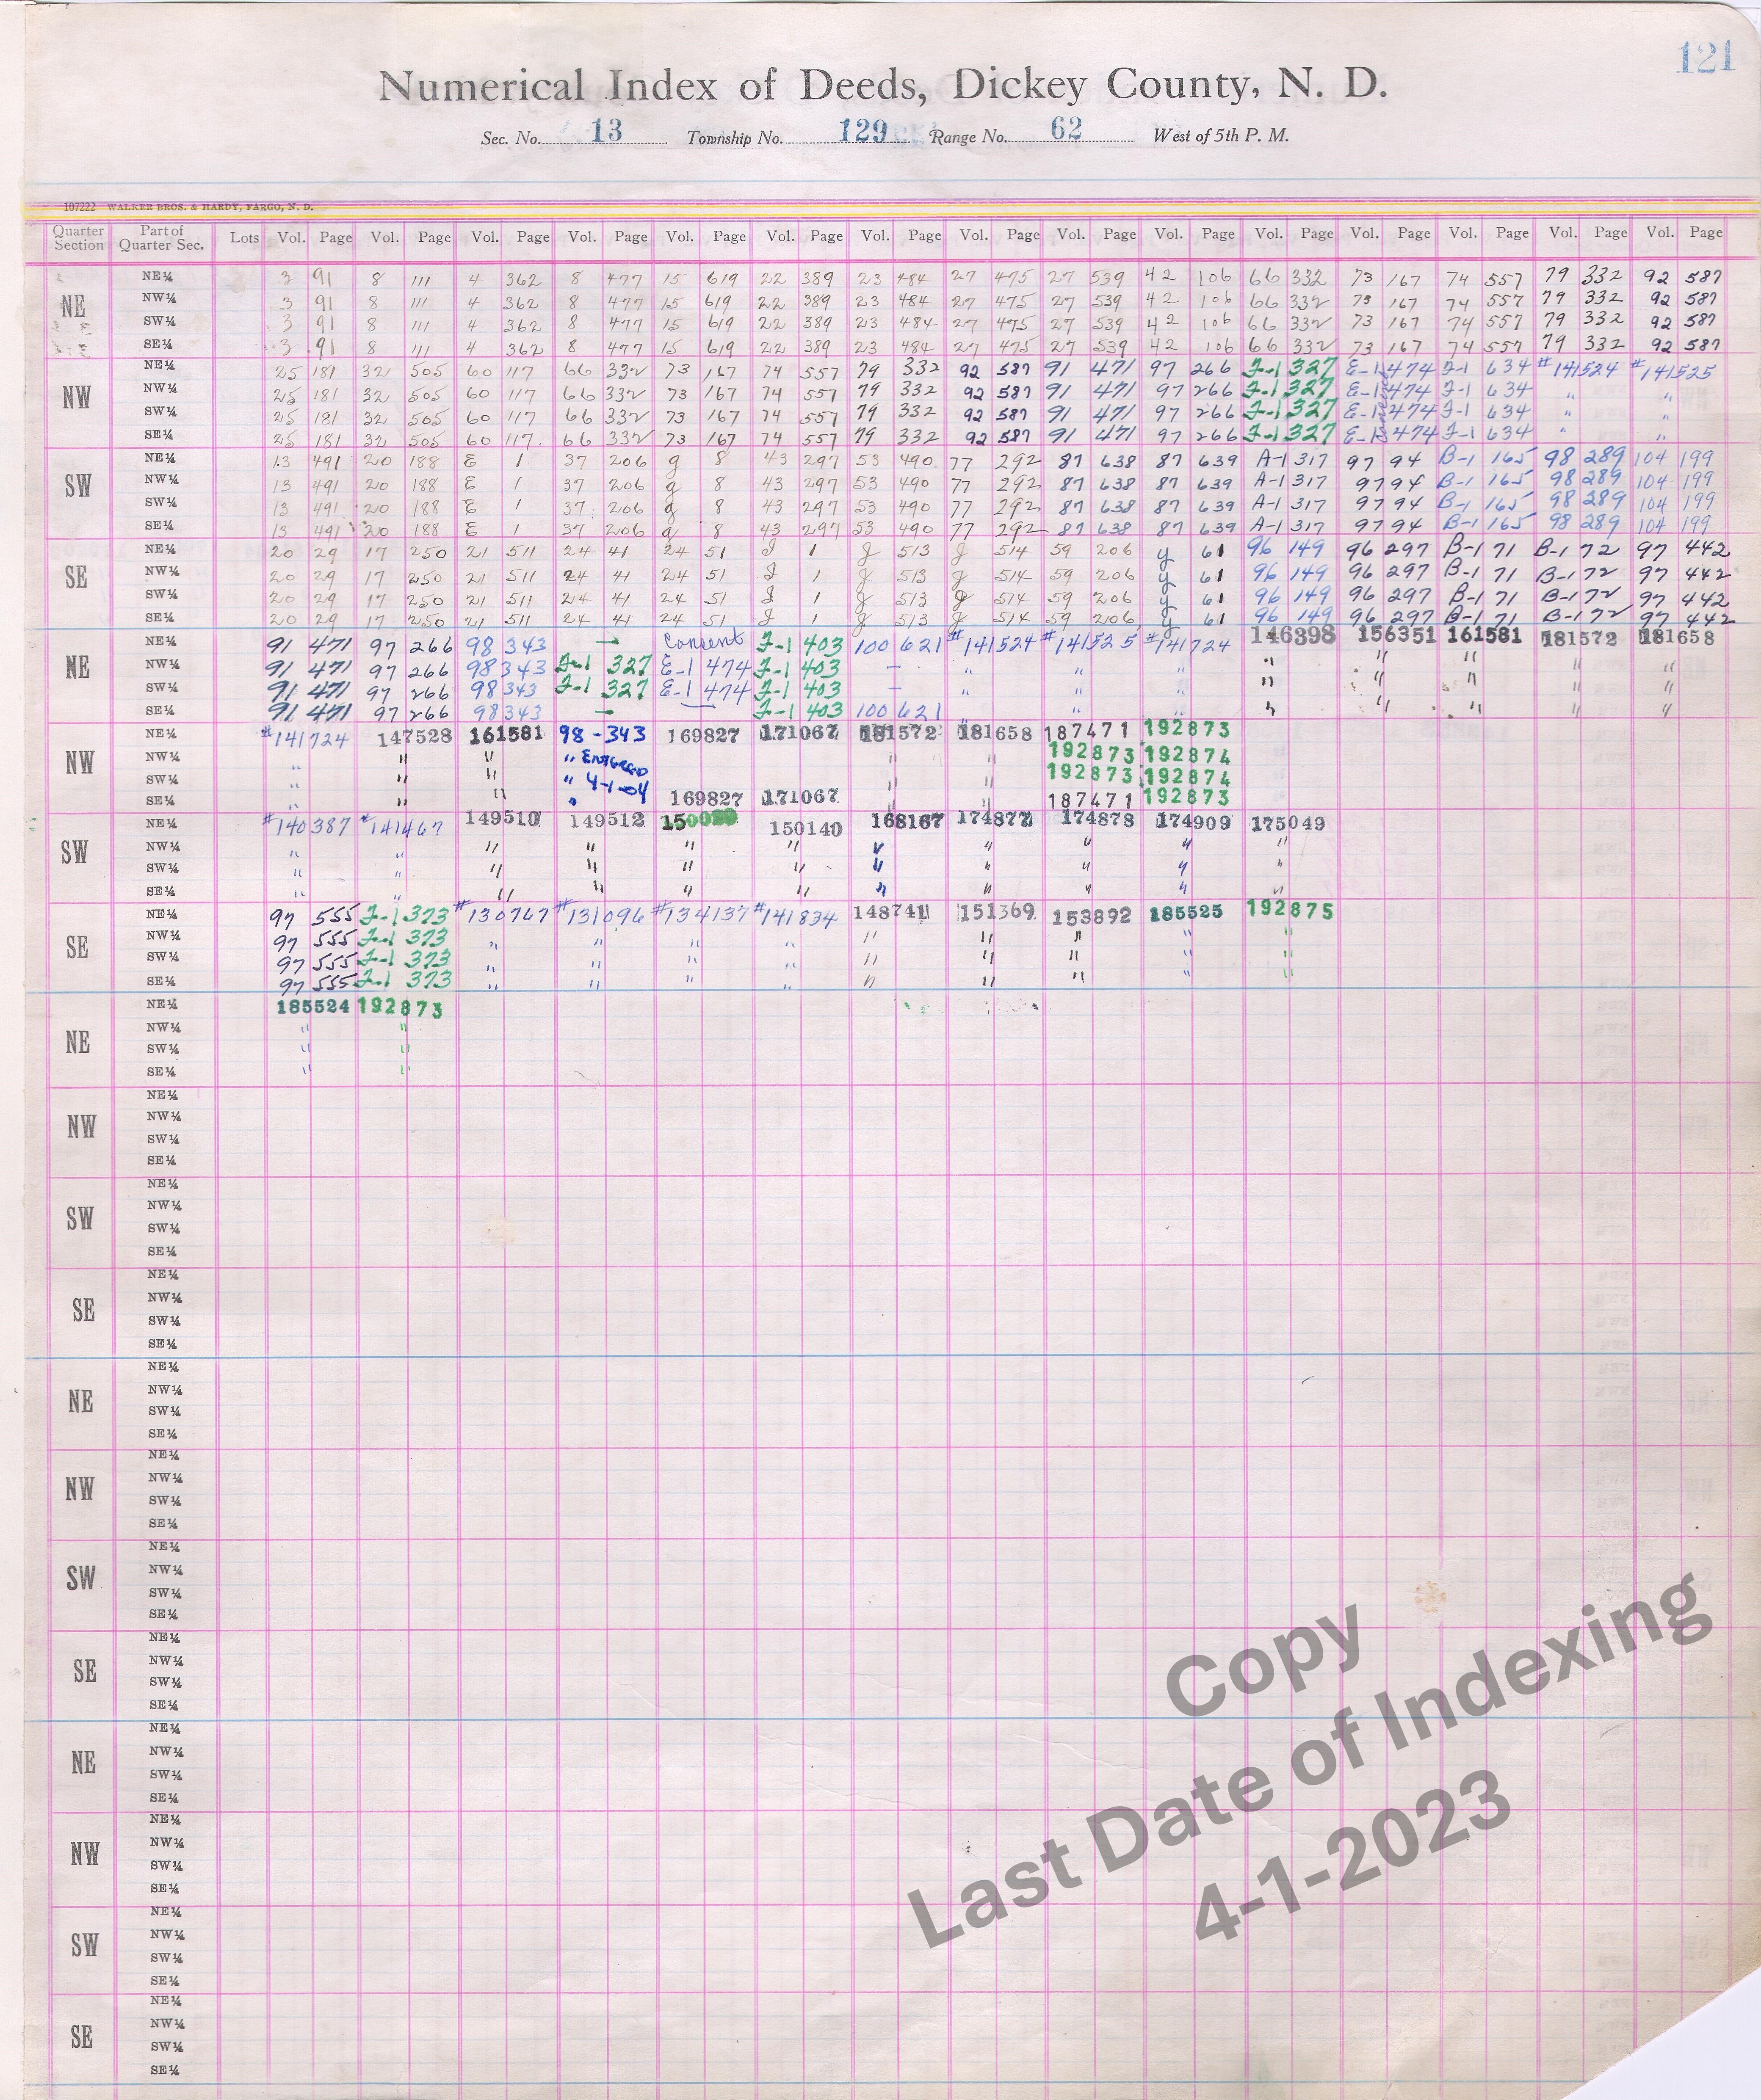 121
Numerical Index of Deeds, Dickey County, N. D.
Sec. No. 13 Township No. 129 Range No. 62 West of 5th P. M.
107222 WALKER BROS. & HARDY, FARGO, N. D.
Quarter Section Part of Quarter Sec. Lots Vol. Page Vol. Page Vol. Page Vol. Page Vol. Page Vol. Page Vol. Page Vol. Page Vol. Page Vol. Page Vol. Page Vol. Page Vol. Page Vol. Page Vol. Page
NE
NE¼ 3 91 8 111 4 362 8 477 15 619 22 389 23 484 27 475 27 539 42 106 66 332 73 167 74 557 79 332 92 587
NW¼ 3 91 8 111 4 362 8 477 15 619 22 389 23 484 27 475 27 539 42 106 66 332 73 167 74 557 79 332 92 587
SW¼ 3 91 8 111 4 362 8 477 15 619 22 389 23 484 27 475 27 539 42 106 66 332 73 167 74 557 79 332 92 587
SE¼ 3 91 8 111 4 362 8 477 15 619 22 389 23 484 27 475 27 539 42 106 66 332 73 167 74 557 79 332 92 587
NW
NE¼ 25 181 32 505 60 117 66 332 73 167 74 557 79 332 92 587 91 471 97 266 J-1 327 E-1 474 J-1 634 #141524 #141525
NW¼ 25 181 32 505 60 117 66 332 73 167 74 557 79 332 92 587 91 471 97 266 J-1 327 E-1 474 J-1 634 " "
SW¼ 25 181 32 505 60 117 66 332 73 167 74 557 79 332 92 587 91 471 97 266 J-1 327 E-1 474 J-1 634 " "
SE¼ 25 181 32 505 60 117 66 332 73 167 74 557 79 332 92 587 91 471 97 266 J-1 327 E-1 474 J-1 634 " "
SW
NE¼ 13 491 20 188 E 1 37 206 g 8 43 297 53 490 77 292 87 638 87 639 A-1 317 97 94 B-1 165 98 289 104 199
NW¼ 13 491 20 188 E 1 37 206 g 8 43 297 53 490 77 292 87 638 87 639 A-1 317 97 94 B-1 165 98 289 104 199
SW¼ 13 491 20 188 E 1 37 206 g 8 43 297 53 490 77 292 87 638 87 639 A-1 317 97 94 B-1 165 98 289 104 199
SE¼ 13 491 20 188 E 1 37 206 g 8 43 297 53 490 77 292 87 638 87 639 A-1 317 97 94 B-1 165 98 289 104 199
SE
NE¼ 20 29 17 250 21 511 24 41 24 51 J 1 g 513 g 514 59 206 y 61 96 149 96 297 B-1 71 B-1 72 97 442
NW¼ 20 29 17 250 21 511 24 41 24 51 J 1 g 513 g 514 59 206 y 61 96 149 96 297 B-1 71 B-1 72 97 442
SW¼ 20 29 17 250 21 511 24 41 24 51 J 1 g 513 g 514 59 206 y 61 96 149 96 297 B-1 71 B-1 72 97 442
SE¼ 20 29 17 250 21 511 24 41 24 51 J 1 g 513 g 514 59 206 y 61 96 149 96 297 B-1 71 B-1 72 97 442
NE
NE¼ 91 471 97 266 98 343 — Consent J-1 403 100 621 #141524 #141525 #141724 146398 156351 161581 181572 181658
NW¼ 91 471 97 266 98 343 J-1 327 E-1 474 J-1 403 — " " " " " " " "
SW¼ 91 471 97 266 98 343 J-1 327 E-1 474 J-1 403 — " " " " " " " "
SE¼ 91 471 97 266 98 343 — J-1 403 100 621 " " " " " " " "
NW
NE¼ #141724 147528 161581 98-343 169827 171067 181572 181658 187471 192873
NW¼ " " " " Entered " " 192873 192874
SW¼ " " " " 4-1-04 " " 192873 192874
SE¼ " " " " 169827 171067 " " 187471 192873
SW
NE¼ #140387 #141467 149510 149512 150140 168167 174877 174878 174909 175049
NW¼ " " " " " " " " " " "
SW¼ " " " " " " " " " " "
SE¼ " " " " " " " " " " "
SE
NE¼ 97 555 J-1 373 #130767 #131096 #134137 #141834 148741 151369 153892 185525 192875
NW¼ 97 555 J-1 373 " " " " " " " " "
SW¼ 97 555 J-1 373 " " " " " " " " "
SE¼ 97 555 J-1 373 " " " " " " " " "
NE
NE¼ 185524 192873
NW¼ " "
SW¼ " "
SE¼ " "
NW
NE¼
NW¼
SW¼
SE¼
SW
NE¼
NW¼
SW¼
SE¼
SE
NE¼
NW¼
SW¼
SE¼
NE
NE¼
NW¼
SW¼
SE¼
NW
NE¼
NW¼
SW¼
SE¼
SW
NE¼
NW¼
SW¼
SE¼
SE
NE¼
NW¼
SW¼
SE¼
NE
NE¼
NW¼
SW¼
SE¼
NW
NE¼
NW¼
SW¼
SE¼
SW
NE¼
NW¼
SW¼
SE¼
SE
NE¼
NW¼
SW¼
SE¼
Copy
Last Date of Indexing
4-1-2023